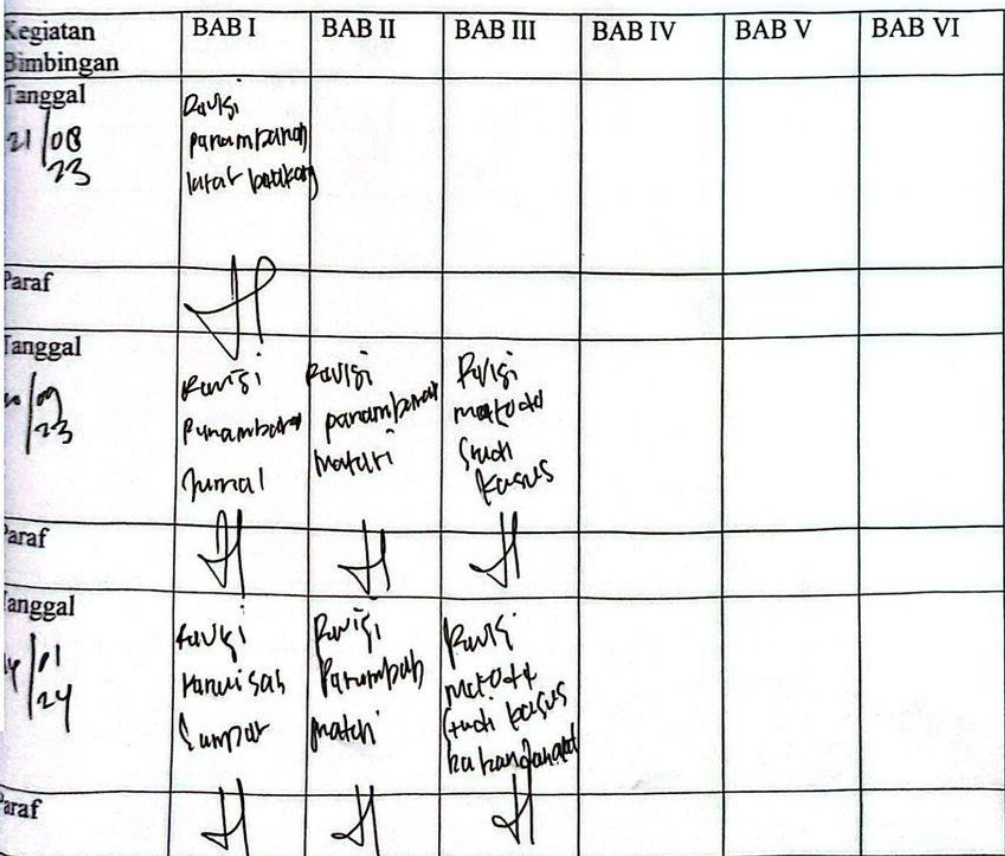 Kegiatan Bimbingan BAB I BAB II BAB III BAB IV BAB V BAB VI
Tanggal
21/08
23
Revisi
penambahan
latar belakang
Paraf
Tanggal
/09
23
Revisi
penambahan
Jurnal
Revisi
penambahan
materi
Revisi
metode
studi
kasus
Paraf
Tanggal
/01
24
Revisi
Revisi
materi
Revisi
metode
studi kasus
Paraf